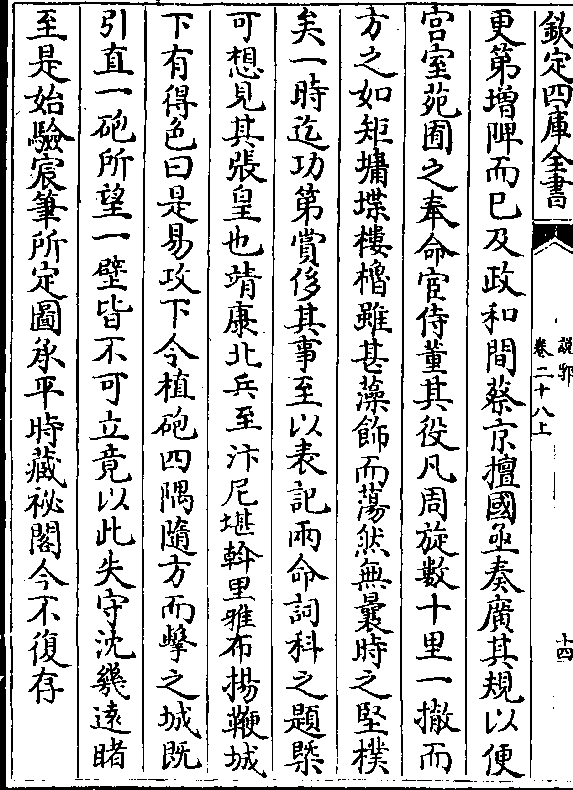 欽定四庫全書
説郛
卷二十八上
十四
更第增陴而已及政和間蔡京擅國亟奏廣其規以便
宫室苑囿之奉命宦侍董其役凡周旋數十里一撤而
方之如矩墉堞樓櫓雖甚藻飾而蕩然無曩時之堅樸
矣一時迄功第賞侈其事至以表記兩命詞科之題槩
可想見其張皇也靖康北兵至汴尼堪斡里雅布揚鞭城
下有得色曰是易攻下令植砲四隅隨方而擊之城既
引直一砲所望一壁皆不可立竟以此失守沈幾遠睹
至是始驗宸筆所定圖承平時藏祕閣今不復存